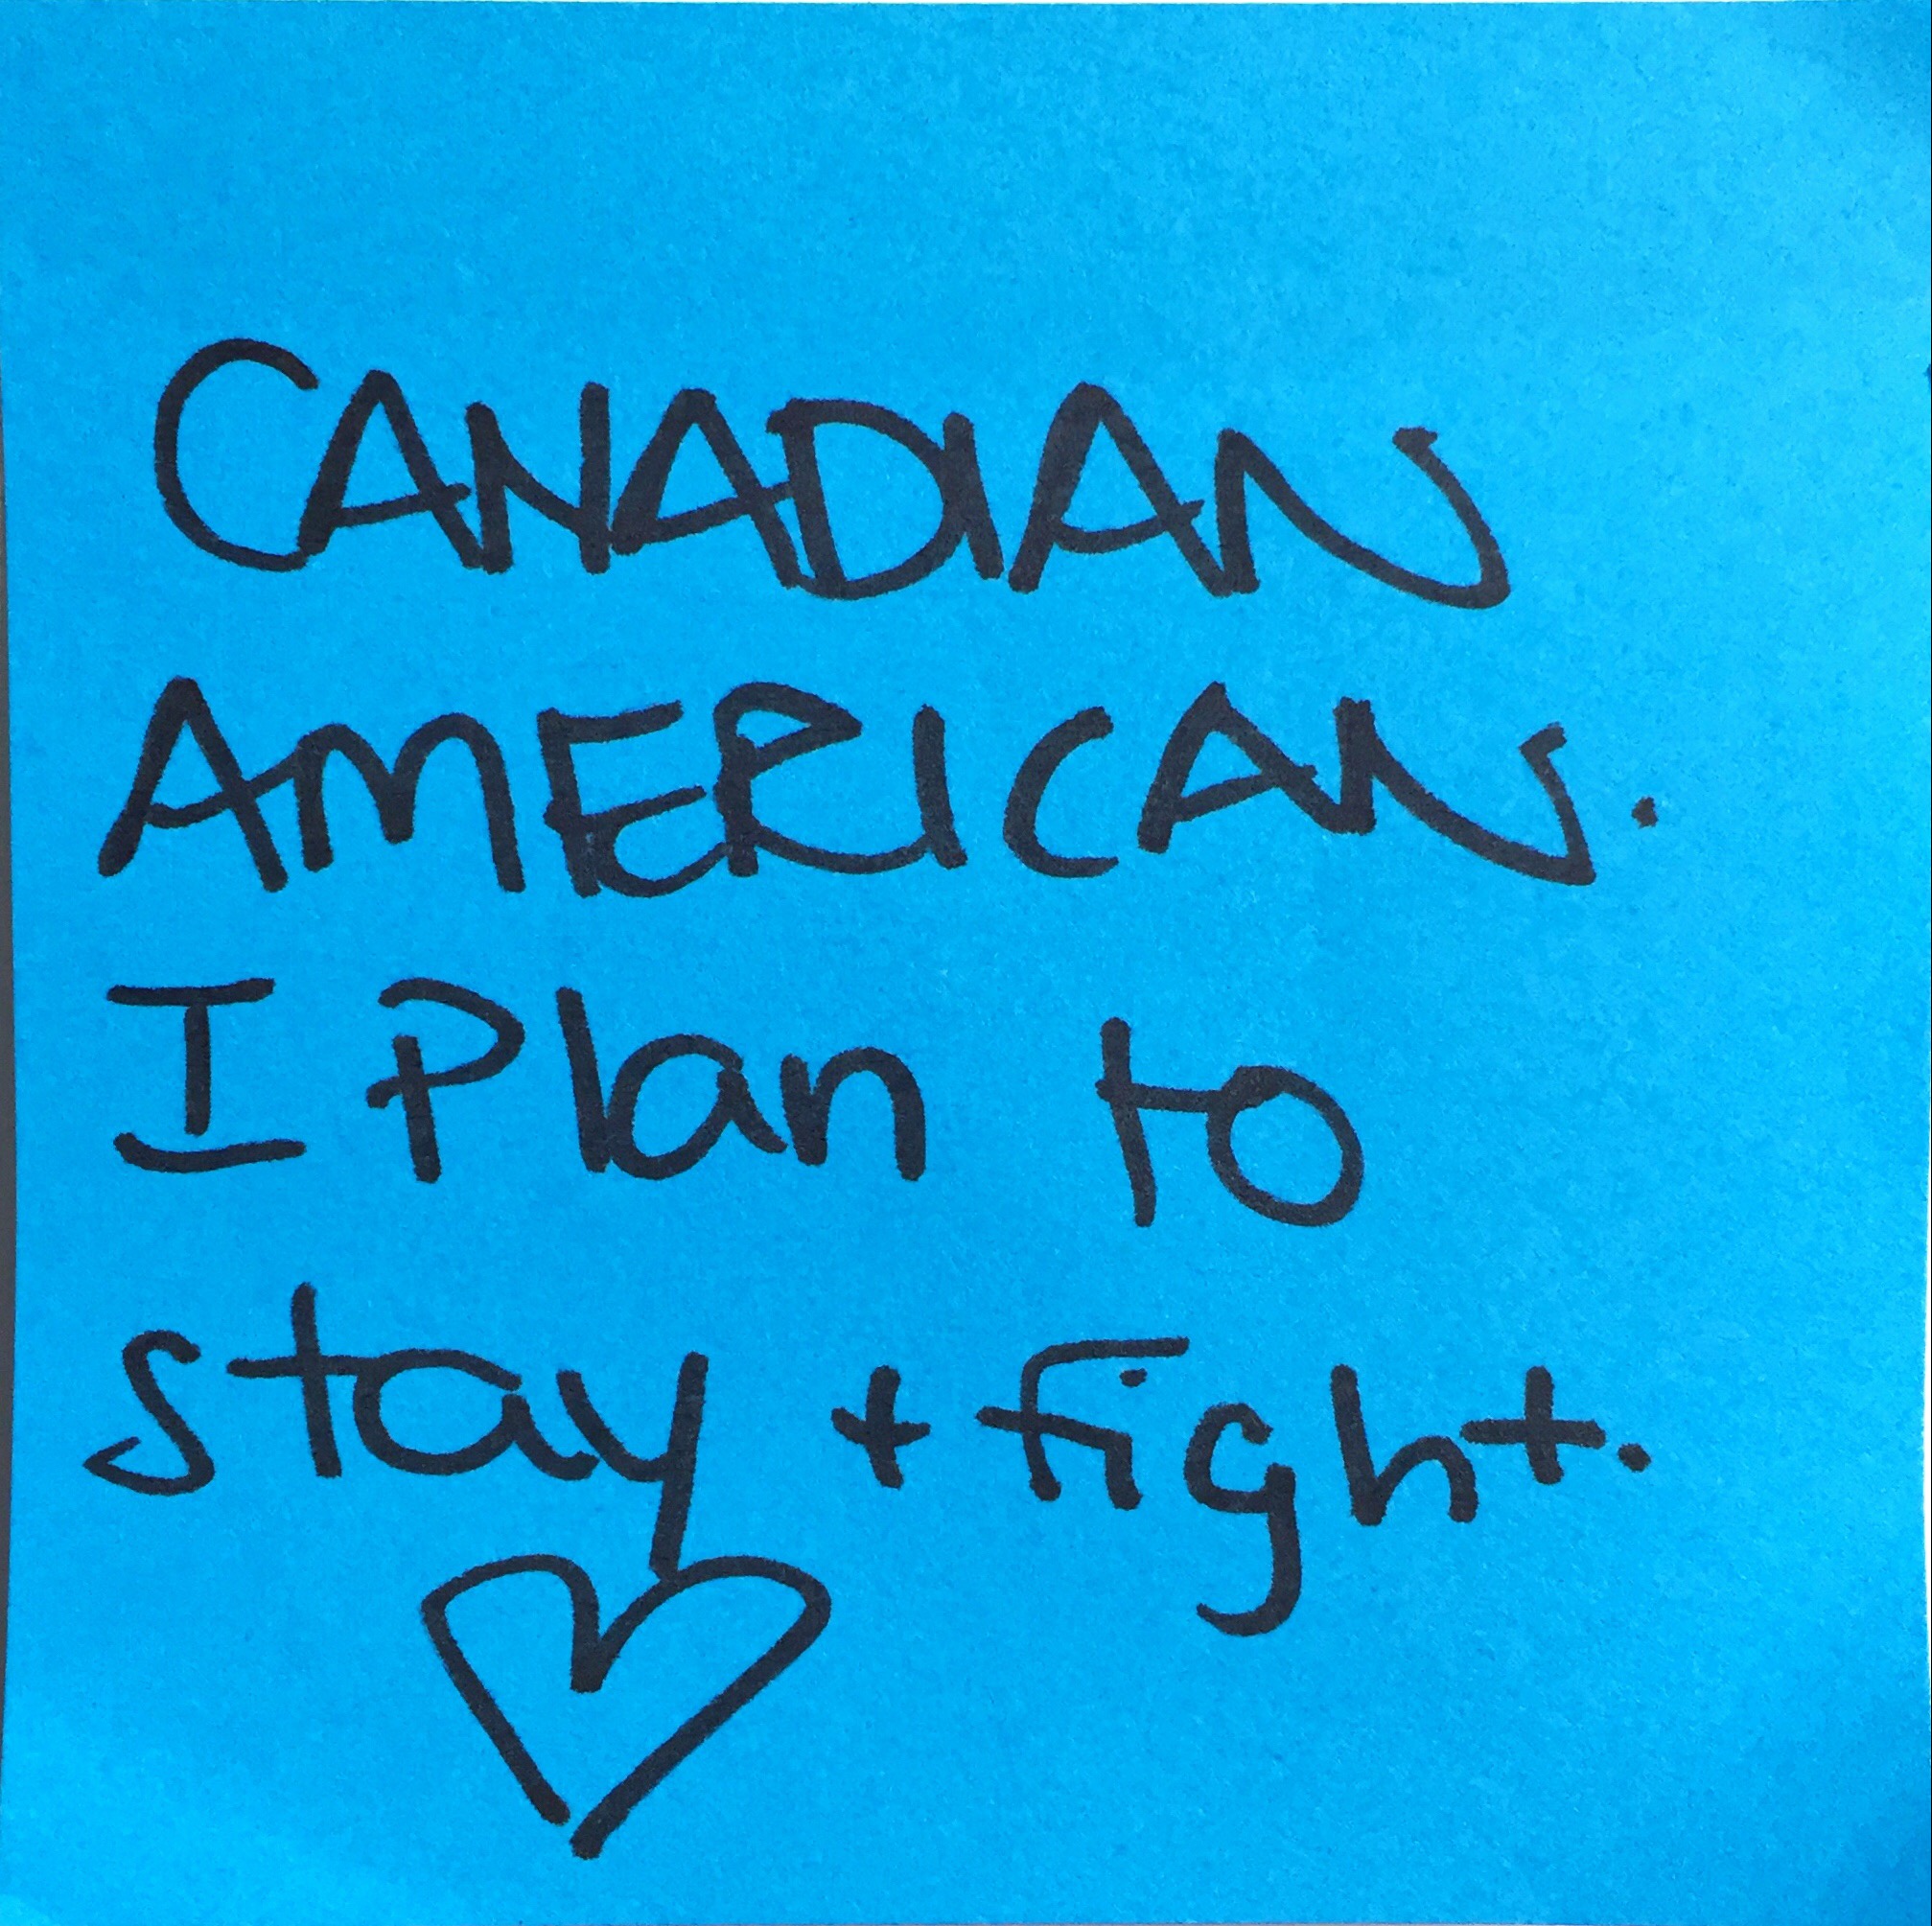 CANADIAN
AMERICAN.
I Plan to
stay + fight.